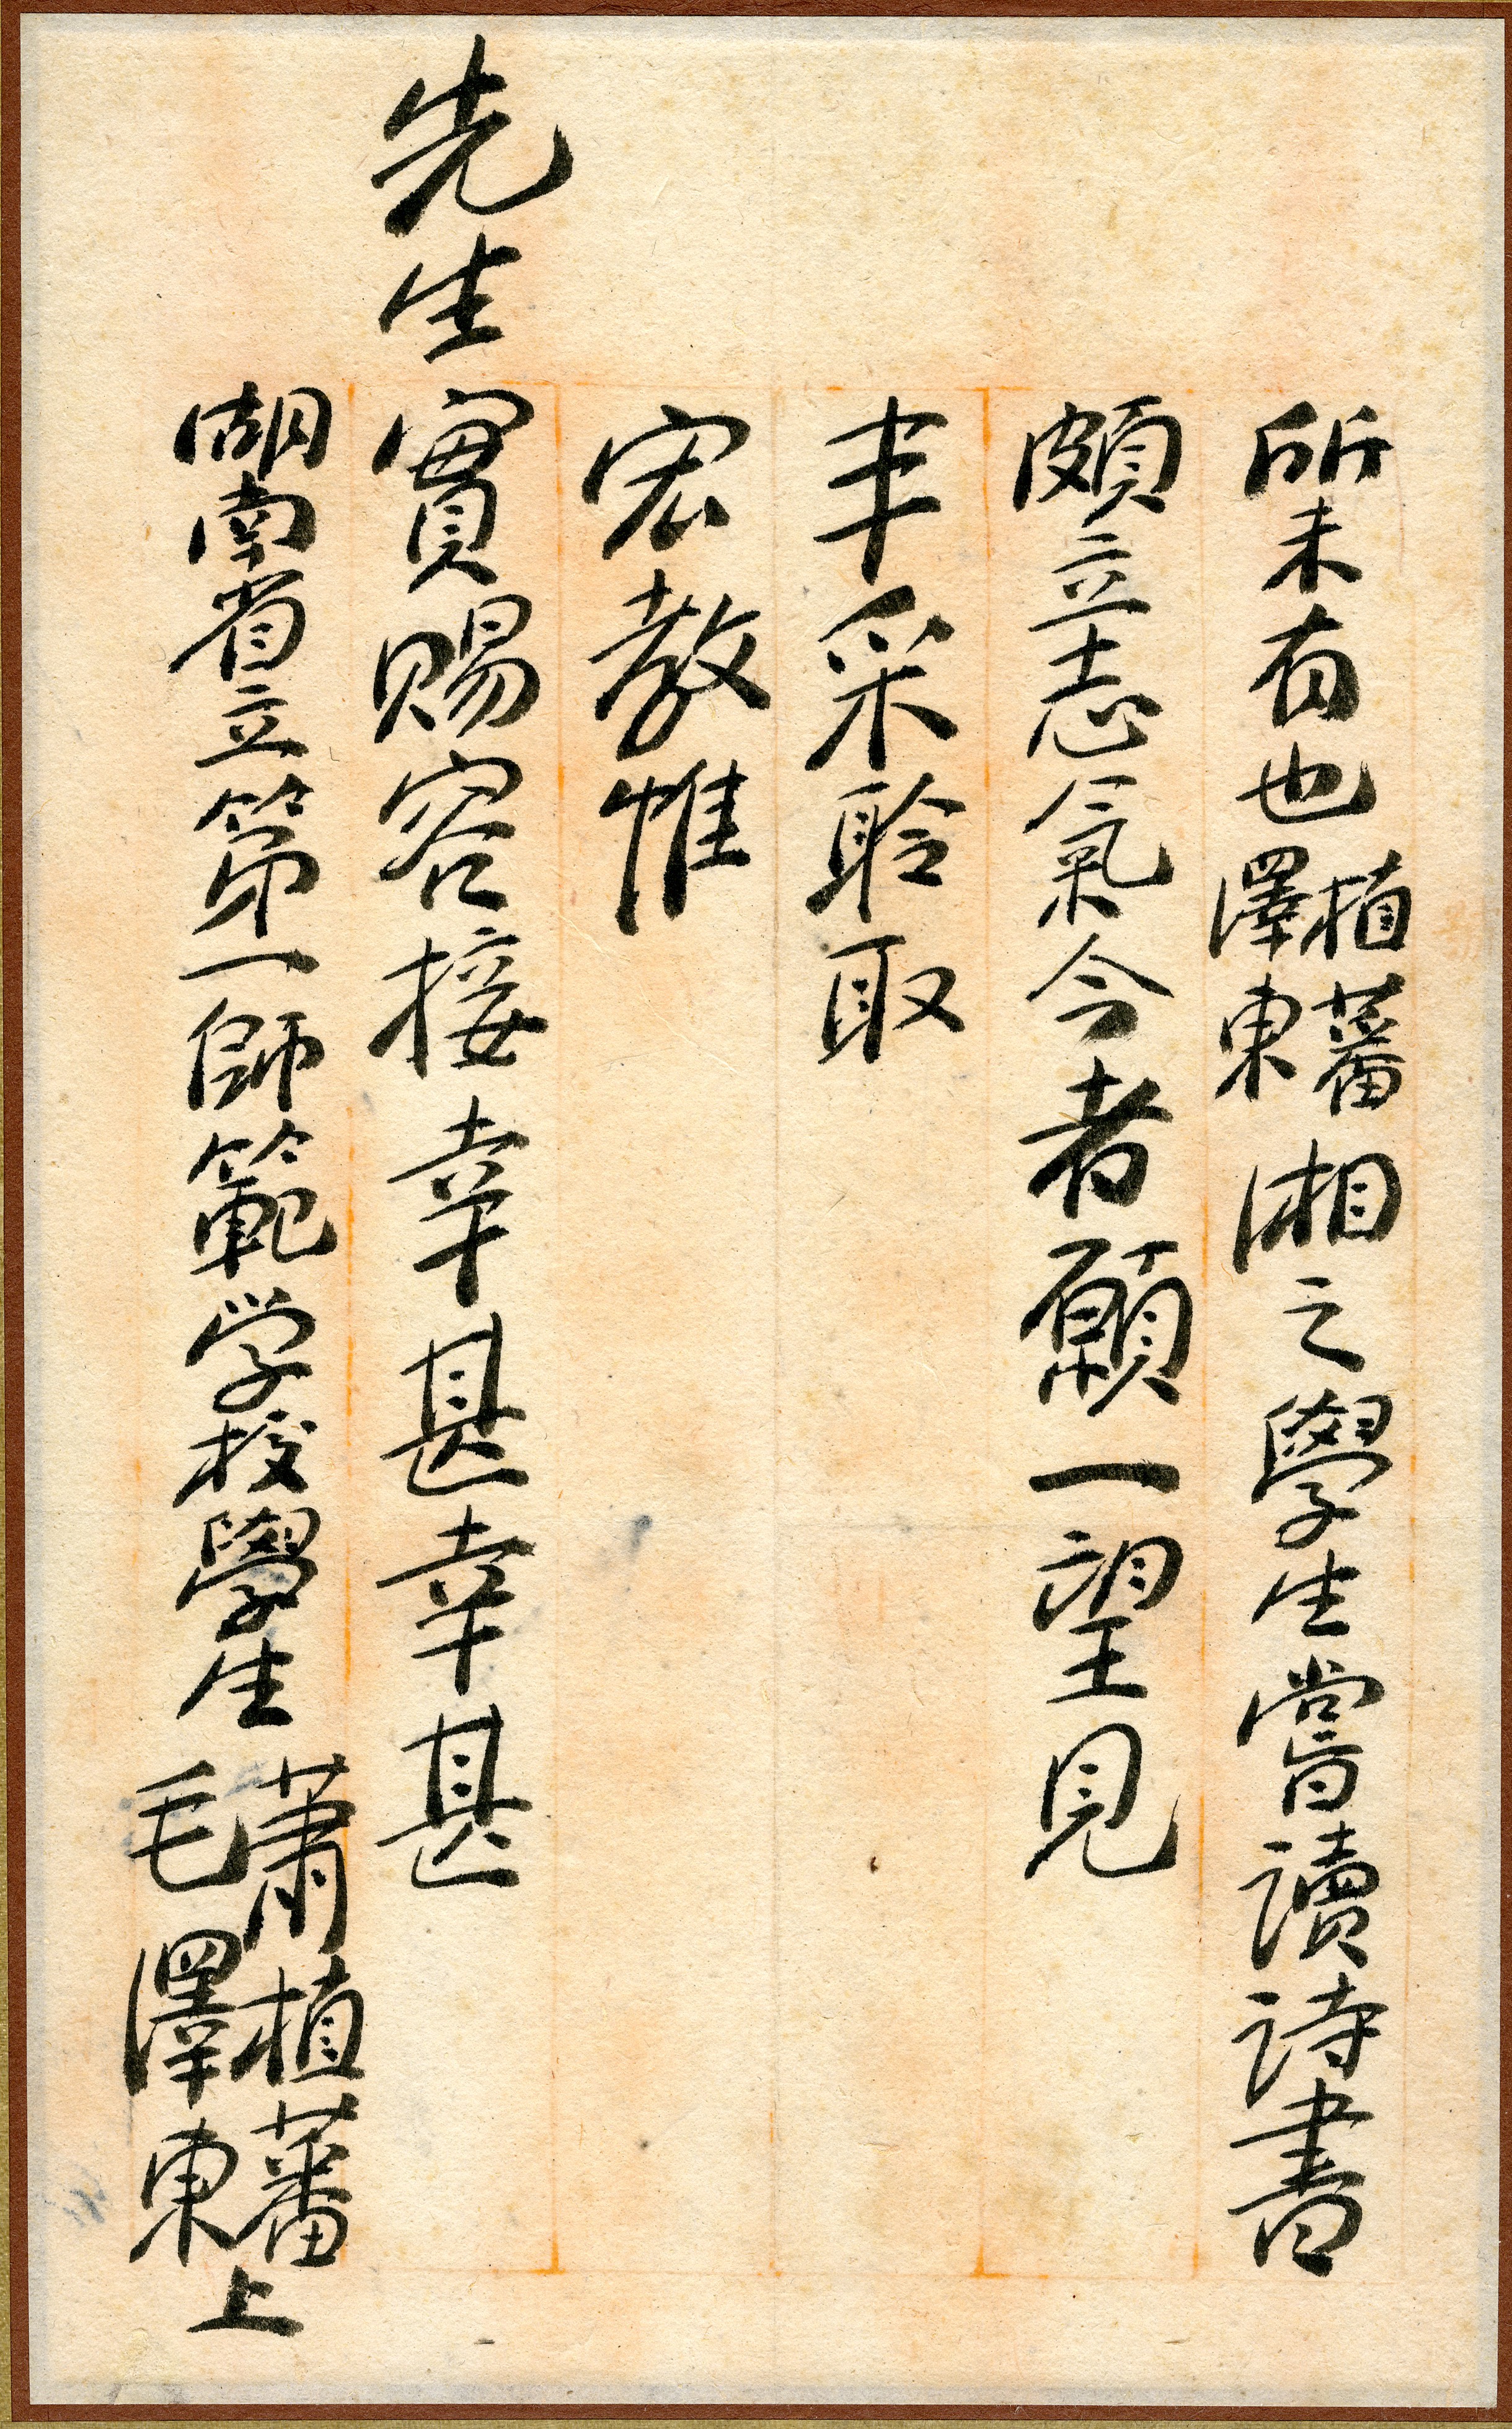 所未有也植蕃澤東湘之學生嘗讀詩書
頗立志氣今者願一望見
丰采聆取
宏教惟
先生實賜容接幸甚幸甚
湖南省立第一師範学校學生蕭植蕃毛澤東上